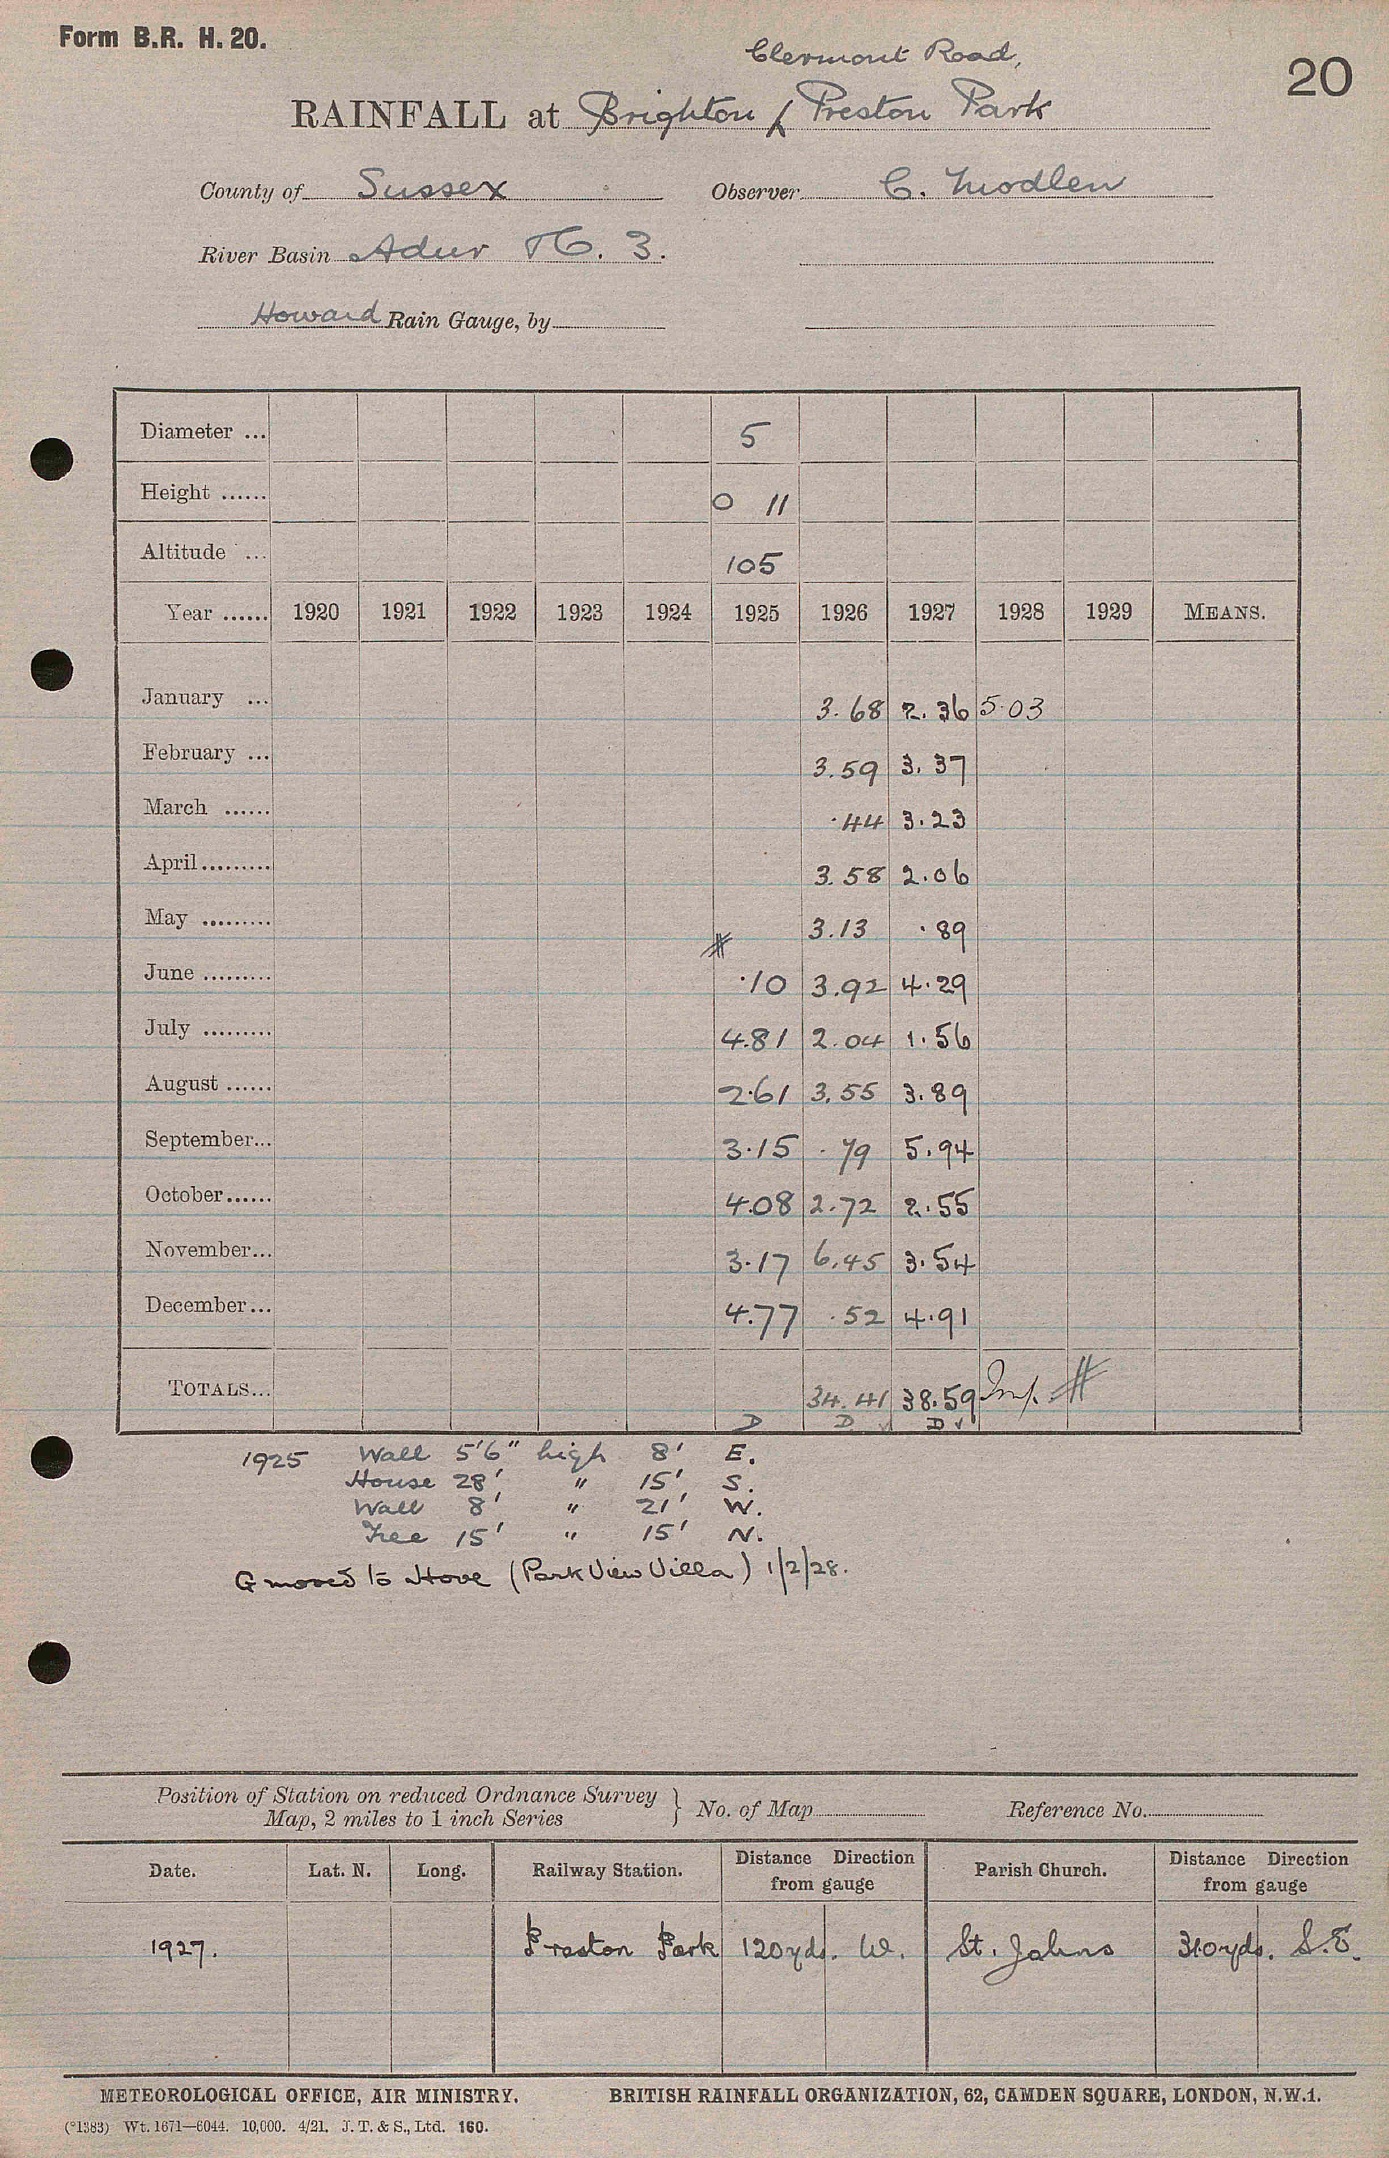 Form B.R. H. 20.
20
Clermont Road,
RAINFALL at Brighton, Preston Park
County of Sussex Observer C. Modlen
River Basin Adur H. 3.
Howard Rain Gauge, by
Diameter ... 5
Height ...... 0 11
Altitude ... 105
Year ...... 1920 1921 1922 1923 1924 1925 1926 1927 1928 1929 MEANS.
January ... 3.68 2.36 5.03
February ... 3.59 3.37
March ...... .44 3.23
April ......... 3.58 2.06
May ......... 3.13 .89
#
June ......... .10 3.92 4.29
July ......... 4.81 2.04 1.56
August ...... 2.61 3.55 3.89
September... 3.15 .79 5.94
October...... 4.08 2.72 2.55
November... 3.17 6.45 3.54
December... 4.77 .52 4.91
TOTALS... 34.41 38.59 Imp. #
D D ✓ D ✓
1925 Wall 5'6" high 8' E.
House 28' " 15' S.
Wall 8' " 21' W.
Tree 15' " 15' N.
G moved to Hove (Park View Villa) 1/2/28.
Position of Station on reduced Ordnance Survey
Map, 2 miles to 1 inch Series } No. of Map Reference No.
Date. Lat. N. Long. Railway Station. Distance Direction from gauge Parish Church. Distance Direction from gauge
1927. Preston Park 120 yds. W. St. Johns 310 yds. S.E.
METEOROLOGICAL OFFICE, AIR MINISTRY. BRITISH RAINFALL ORGANIZATION, 62, CAMDEN SQUARE, LONDON, N.W.1.
(*1383) Wt. 1671—6044. 10,000. 4/21. J. T. & S., Ltd. 160.